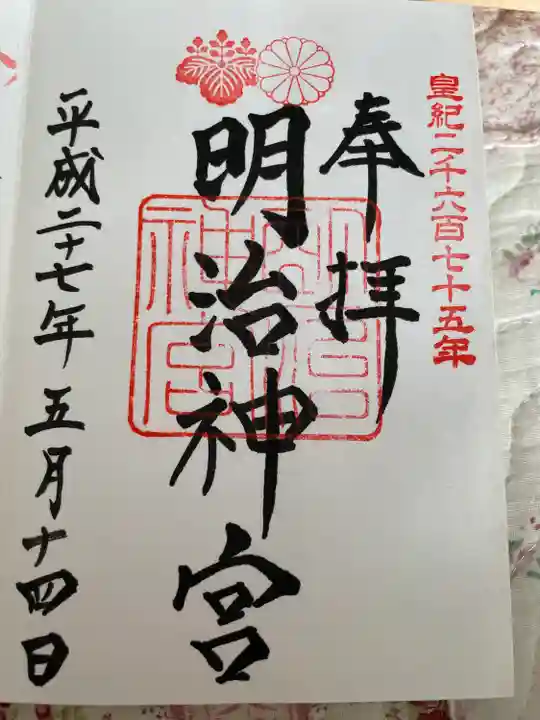 皇紀二千六百七十五年
奉拝
明治神宮
明治神宮
平成二十七年 五月十四日